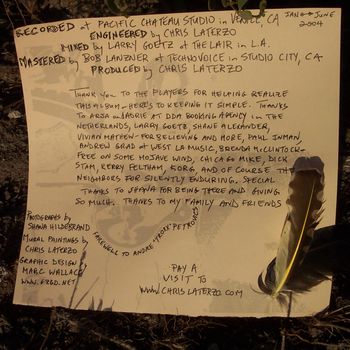 RECORDED at PACIFIC CHATEAU STUDIO in VENICE, CA
JAN → JUNE
2004
ENGINEERED by CHRIS LATERZO
MIXED by LARRY GOETZ at THE LAIR in L.A.
MASTERED by BOB LANZNER at TECHNOVOICE in STUDIO CITY, CA
PRODUCED by CHRIS LATERZO
THANK YOU TO THE PLAYERS FOR HELPING REALIZE
THIS ALBUM - HERE'S TO KEEPING IT SIMPLE. THANKS
TO ARZA and ADRIE AT DDA BOOKING AGENCY IN THE
NETHERLANDS, LARRY GOETZ, SHANE ALEXANDER,
VIVIAN MATHEN - FOR BELIEVING AND MORE, PAUL INMAN,
ANDREW GRAD at WEST LA MUSIC, BRENDA McCLINTOCK -
FREE ON SOME MOJAVE WIND, CHICAGO MIKE, DICK
STAM, KERRY FELTHAM, KORG, AND OF COURSE THE
NEIGHBORS FOR SILENTLY ENDURING. SPECIAL
THANKS TO SHANA FOR BEING THERE AND GIVING
SO MUCH. THANKS TO MY FAMILY AND FRIENDS
FAREWELL TO ANDRE PETROSKI
PHOTOGRAPHS by
SHANA HILDEBRAND
MURAL PAINTINGS by
CHRIS LATERZO
GRAPHIC DESIGN by
MARC WALLACE
PAY A
VISIT TO
www.CHRISLATERZO.COM